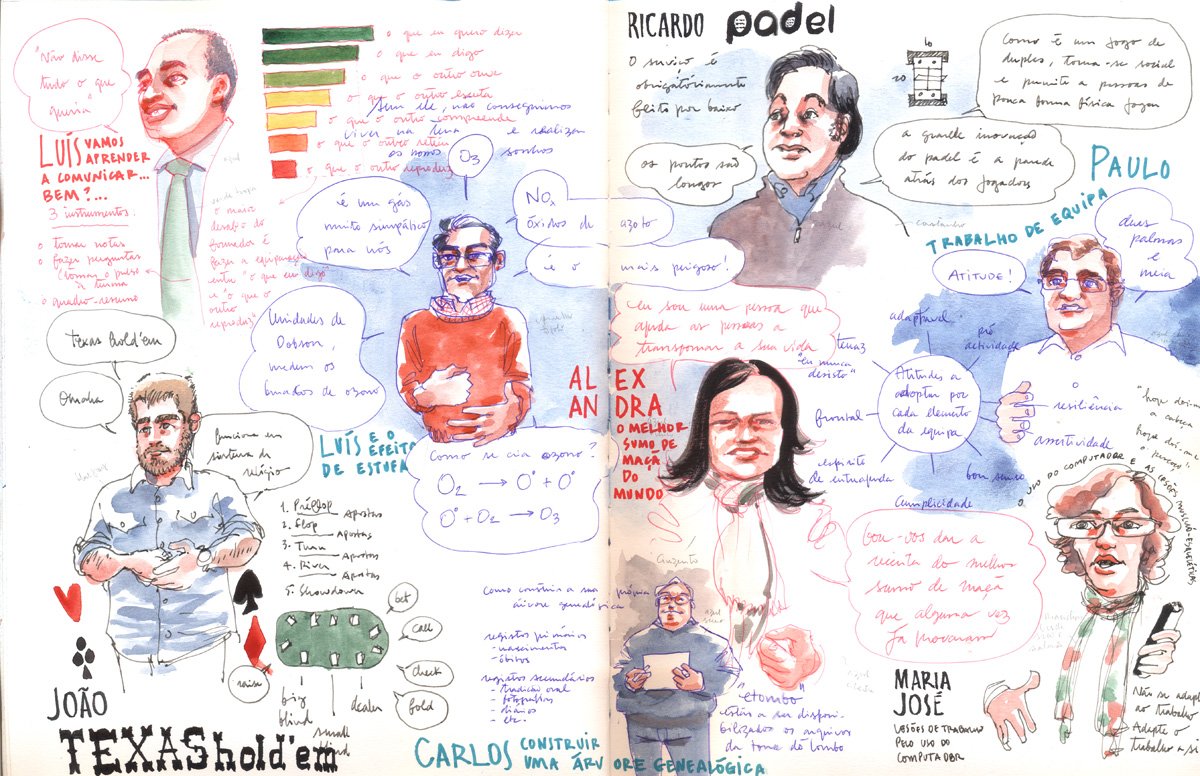 "Não disse
tudo o que
queria"
LUÍS VAMOS
APRENDER
A COMUNICAR...
BEM?...
3 instrumentos.
o tomar notas
o fazer perguntas
(tomar o pulso
à turma
o quadro-resumo
o que eu quero dizer
o que eu digo
o que o outro ouve
o que o outro escuta
o que o outro compreende
o que o outro retem
o, que o outro reproduz
Sem ele, não conseguimos
viver na Terra e realizar
os nossos sonhos
o maior
desafio do
formador é
fazer a equiparação
entre "o que eu digo"
e "o que o
outro
reproduz"
O3
é um gás
muito simpático
para nós
NOx
óxidos de azoto
é o mais perigoso!
Unidades de
Dobson,
medem os
buracos de ozono
LUÍS E O
EFEITO
DE ESTUFA
Como se cia ozono?
O2 → O• + O•
O• + O2 → O3
Texas hold'em
Omaha
funciona em
sentido do
relógio
1. Preflop
Apostas
2. Flop
Apostas
3. Turn
Apostas
4. River
Apostas
5. Showdown
bet
call
check
fold
raise
big
blind
small
blind
dealer
JOÃO
TEXAS hold'em
como construir a sua própria
árvore genealógica
registos primários
- nascimentos
- óbitos
registos secundários
- tradição oral
- fotografias
- diários
- etc.
CARLOS CONSTRUIR
UMA ÁRVORE GENEALÓGICA
RICARDO padel
O serviço é
obrigatoriamente
feito por baixo
os pontos são
longos
10
20
Como é um jogo de
duples, torna-se social
e permite a pessoas de
pouca forma física jogar
a grande inovação
do padel é a parede
atrás dos jogadores
castanho
azul
PAULO
TRABALHO DE EQUIPA
ATITUDE!
duas
palmas
e
meia
Atitudes a
adoptar por
cada elemento
da equipa
adaptável
pró
actividade
resiliência
assertividade
bom senso
Cumplicidade
espírito
de entreajuda
frontal
tenaz
"eu nunca
desisto"
eu sou uma pessoa que
ajuda as pessoas a
transformar a sua vida
ALEXANDRA
O MELHOR
SUMO DE
MAÇÃ
DO
MUNDO
Vou-vos dar a
receita do melhor
sumo de maçã
que alguma vez
já provaram
cinzento
azul
escuro
"etombo"
estão a ser disponi-
bilizados os arquivos
da torre do tombo
MARIA
JOSÉ
LESÕES DE TRABALHO
PELO USO DO
COMPUTADOR
O USO DO COMPUTADOR E AS LESÕES MÚSCULO-ESQUELÉTICAS
Não se adapte
ao trabalho
Adapte o
trabalho a si